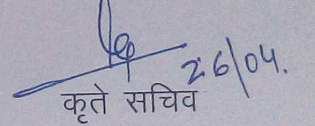 26/04.
कृते सचिव